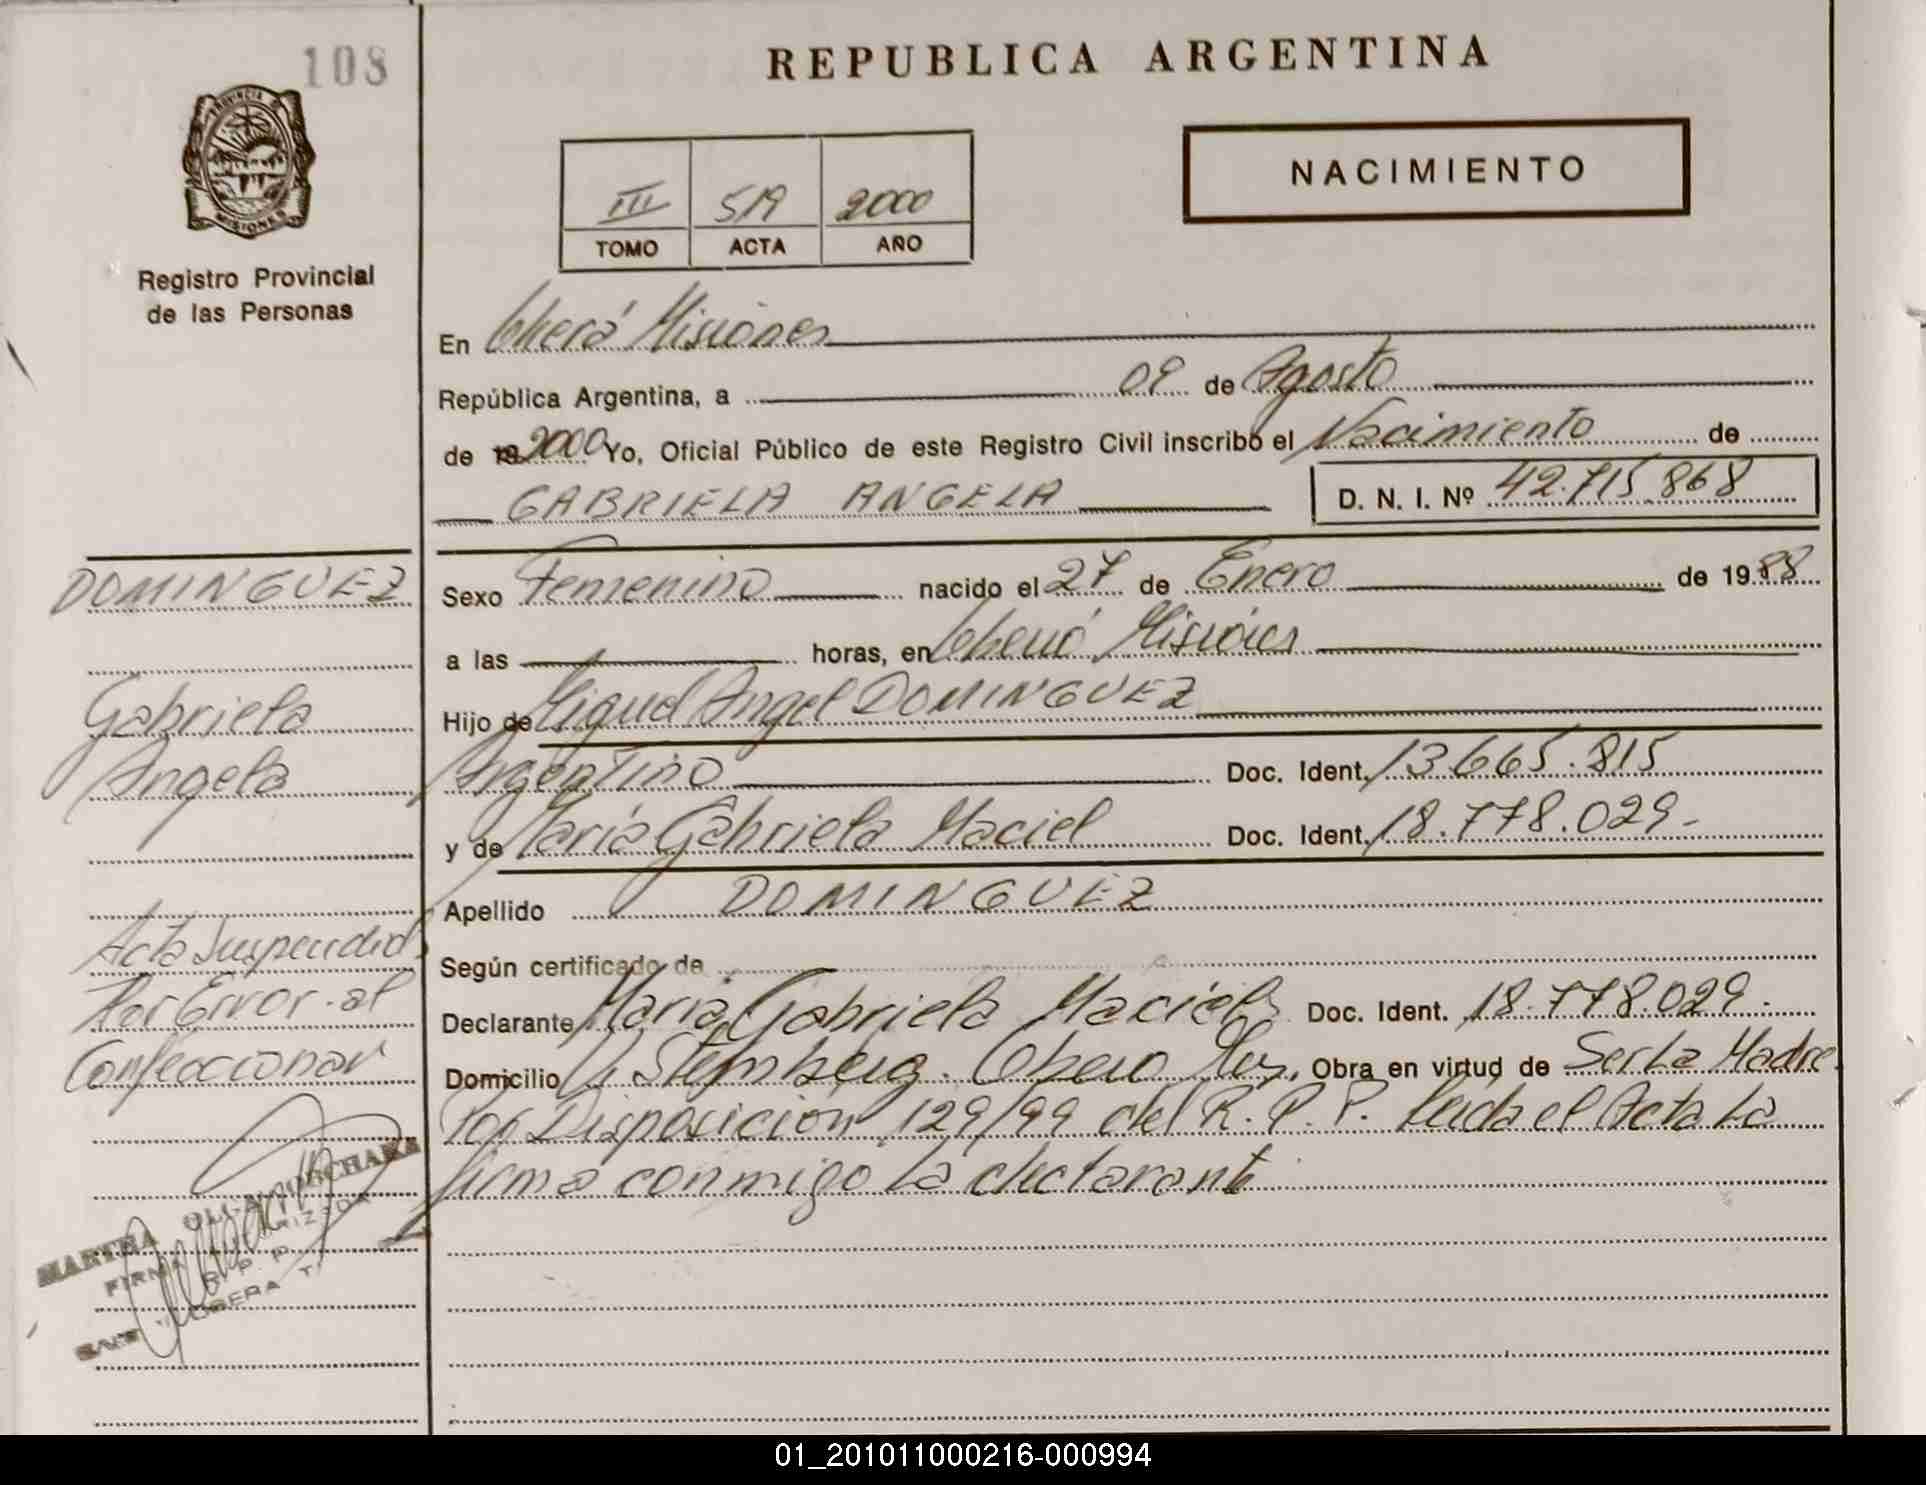 108
REPUBLICA ARGENTINA
PROVINCIA DE
MISIONES
Registro Provincial
de las Personas
NACIMIENTO
III 519 2000
TOMO ACTA AÑO
En Oberá Misiones
República Argentina, a 09 de Agosto
de 19 2000 Yo, Oficial Público de este Registro Civil inscribo el Nacimiento de
GABRIELA ANGELA D. N. I. Nº 42.715.868
Sexo Femenino nacido el 27 de Enero de 19 88
a las horas, en Oberá Misiones
Hijo de Miguel Angel DOMINGUEZ
Argentino Doc. Ident. 13.665.815
y de María Gabriela Maciel Doc. Ident. 18.778.029.-
Apellido DOMINGUEZ
Según certificado de
Declarante María Gabriela Maciel Doc. Ident. 18.778.029.
Domicilio Stemberg. Oberá Mis. Obra en virtud de Ser La Madre
Por Disposición 129/99 del R. P. P. leída el Acta la
firma conmigo la declarante
DOMINGUEZ
Gabriela
Angela
Acta Suspendida
Por Error al
Confeccionar
MARTHA OLGA
FIRMA AUTORIZADA
R P P
OBERA
01_201011000216-000994